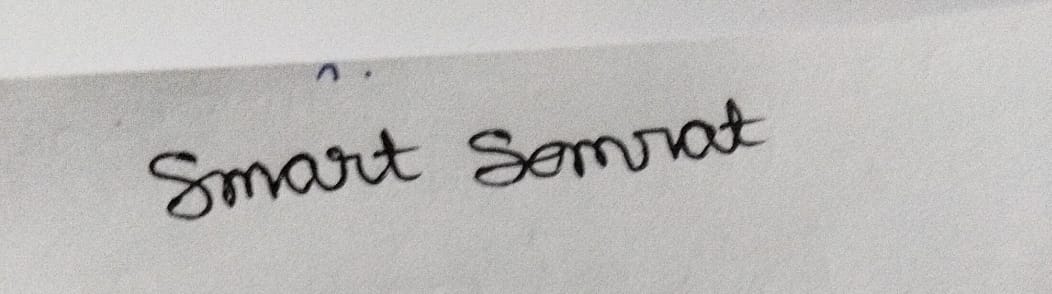 Smart Semrat